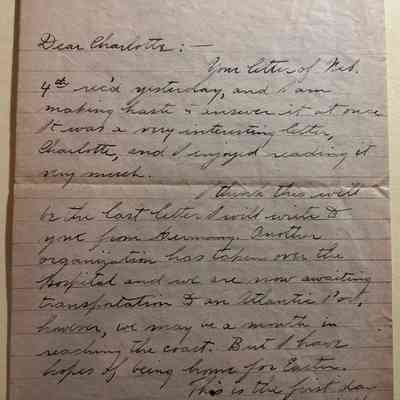 Dear Charlotte: —
Your letter of Feb.
4th rec'd yesterday, and I am
making haste to answer it at once
It was a very interesting letter,
Charlotte, and I enjoyed reading it
very much.
I think this will
be the last letter I will write to
you from Germany. Another
organization has taken over the
hospital and we are now awaiting
transportation to an Atlantic Port,
however, we may be a month in
reaching the coast. But I have
hopes of being home for Easter.
This is the first day